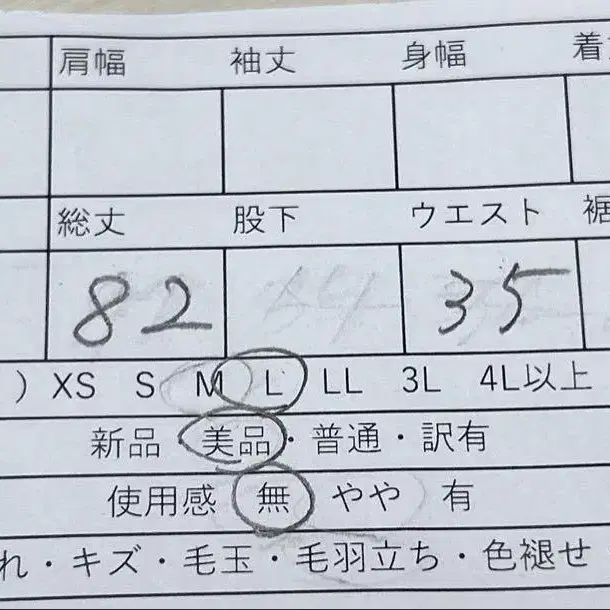 肩幅 袖丈 身幅 着
総丈 股下 ウエスト 裾
82 35
) XS S M L LL 3L 4L以上
新品・美品・普通・訳有
使用感 無 やや 有
れ・キズ・毛玉・毛羽立ち・色褪せ